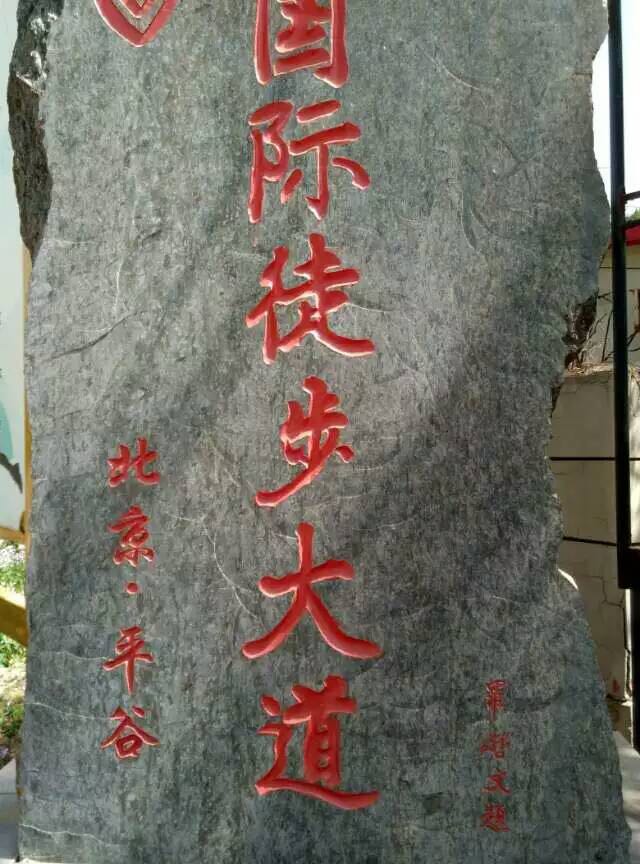 国际徒步大道
北京·平谷